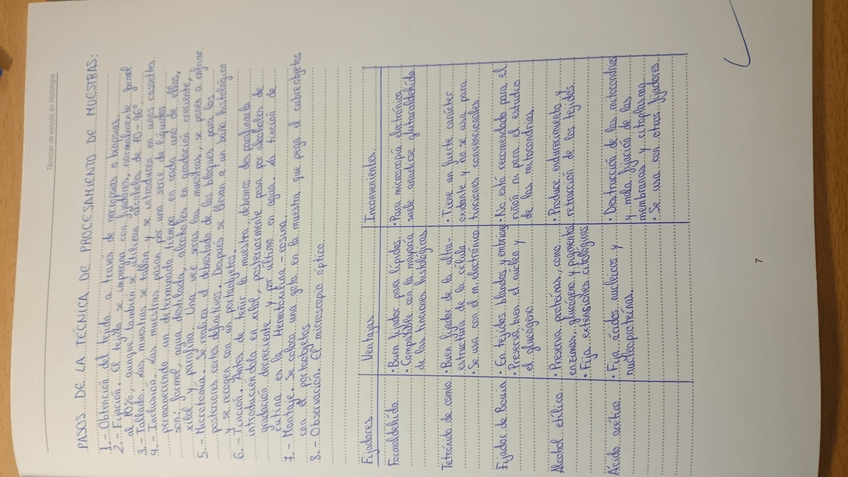 Técnicas de estudio en histología
PASOS DE LA TÉCNICA DE PROCESAMIENTO DE MUESTRAS:
1.- Obtención del tejido a través de necropsias o biopsias.
2.- Fijación. El tejido se impregna con fijadores, normalmente formol
al 10%, aunque también se utilizan alcoholes de 70-96º
3.- Tallado. Las muestras se tallan y se introducen en unos cassettes.
4.- Inclusión. Las muestras pasan por una serie de líquidos
permaneciendo un determinado tiempo en cada uno de ellos,
son: formol, agua destilada, alcoholes en gradación creciente,
xilol y parafina. Una vez secas las muestras, se pasa a enfriar
5.- Microtomía. Se realiza el desbastado de los bloques para los
posteriores cortes definitivos. Después se llevan a un baño histológico
y se recogen con un portaobjetos.
6.- Tinción. Antes de teñir la muestra, debemos desparafinarla
introduciéndola en xilol, posteriormente pasa por alcoholes de
gradación decreciente y por último en agua. La tinción de
rutina es la Hematoxilina-eosina.
7.- Montaje. Se coloca una gota en la muestra que pega el cubreobjetos
con el portaobjetos
8.- Observación. El microscopio óptico.
Fijadores Ventajas Inconvenientes
Formaldehído · Buen fijador para lípidos. · Para microscopía electrónica
· Compatible con la mayoría suele añadirse glutaraldehído
de las tinciones histológicas
Tetróxido de osmio · Buen fijador de la ultra- · Tiene un fuerte carácter
estructura de la célula oxidante y no se usa para
· Se usa con el m. electrónico tinciones convencionales
Fijador de Bouin · En tejidos blandos y embriones · No está recomendado para el
· Preserva bien el núcleo y riñón ni para el estudio
el glucógeno de las mitocondrias
Alcohol etílico · Preserva proteínas, como · Produce endurecimiento y
enzimas, glucógeno y pigmentos retracción de los tejidos
· Fija extensiones citológicas
Ácido acético · Fija ácidos nucleicos y · Destrucción de las mitocondrias
nucleoproteínas. y mala fijación de las
membranas y citoplasma
· Se usa con otros fijadores.
7